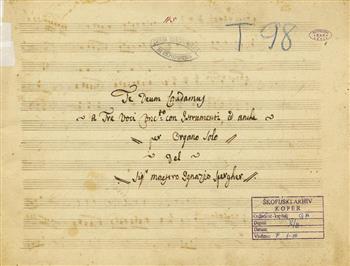 T 98
Te Deum Laudamus
A Tre Voci Conc.ti con Istrumenti, et anche
per Organo Solo
Del
Sig.r maestro Ignazio Spergher
ŠKOFIJSKI ARHIV
KOPER